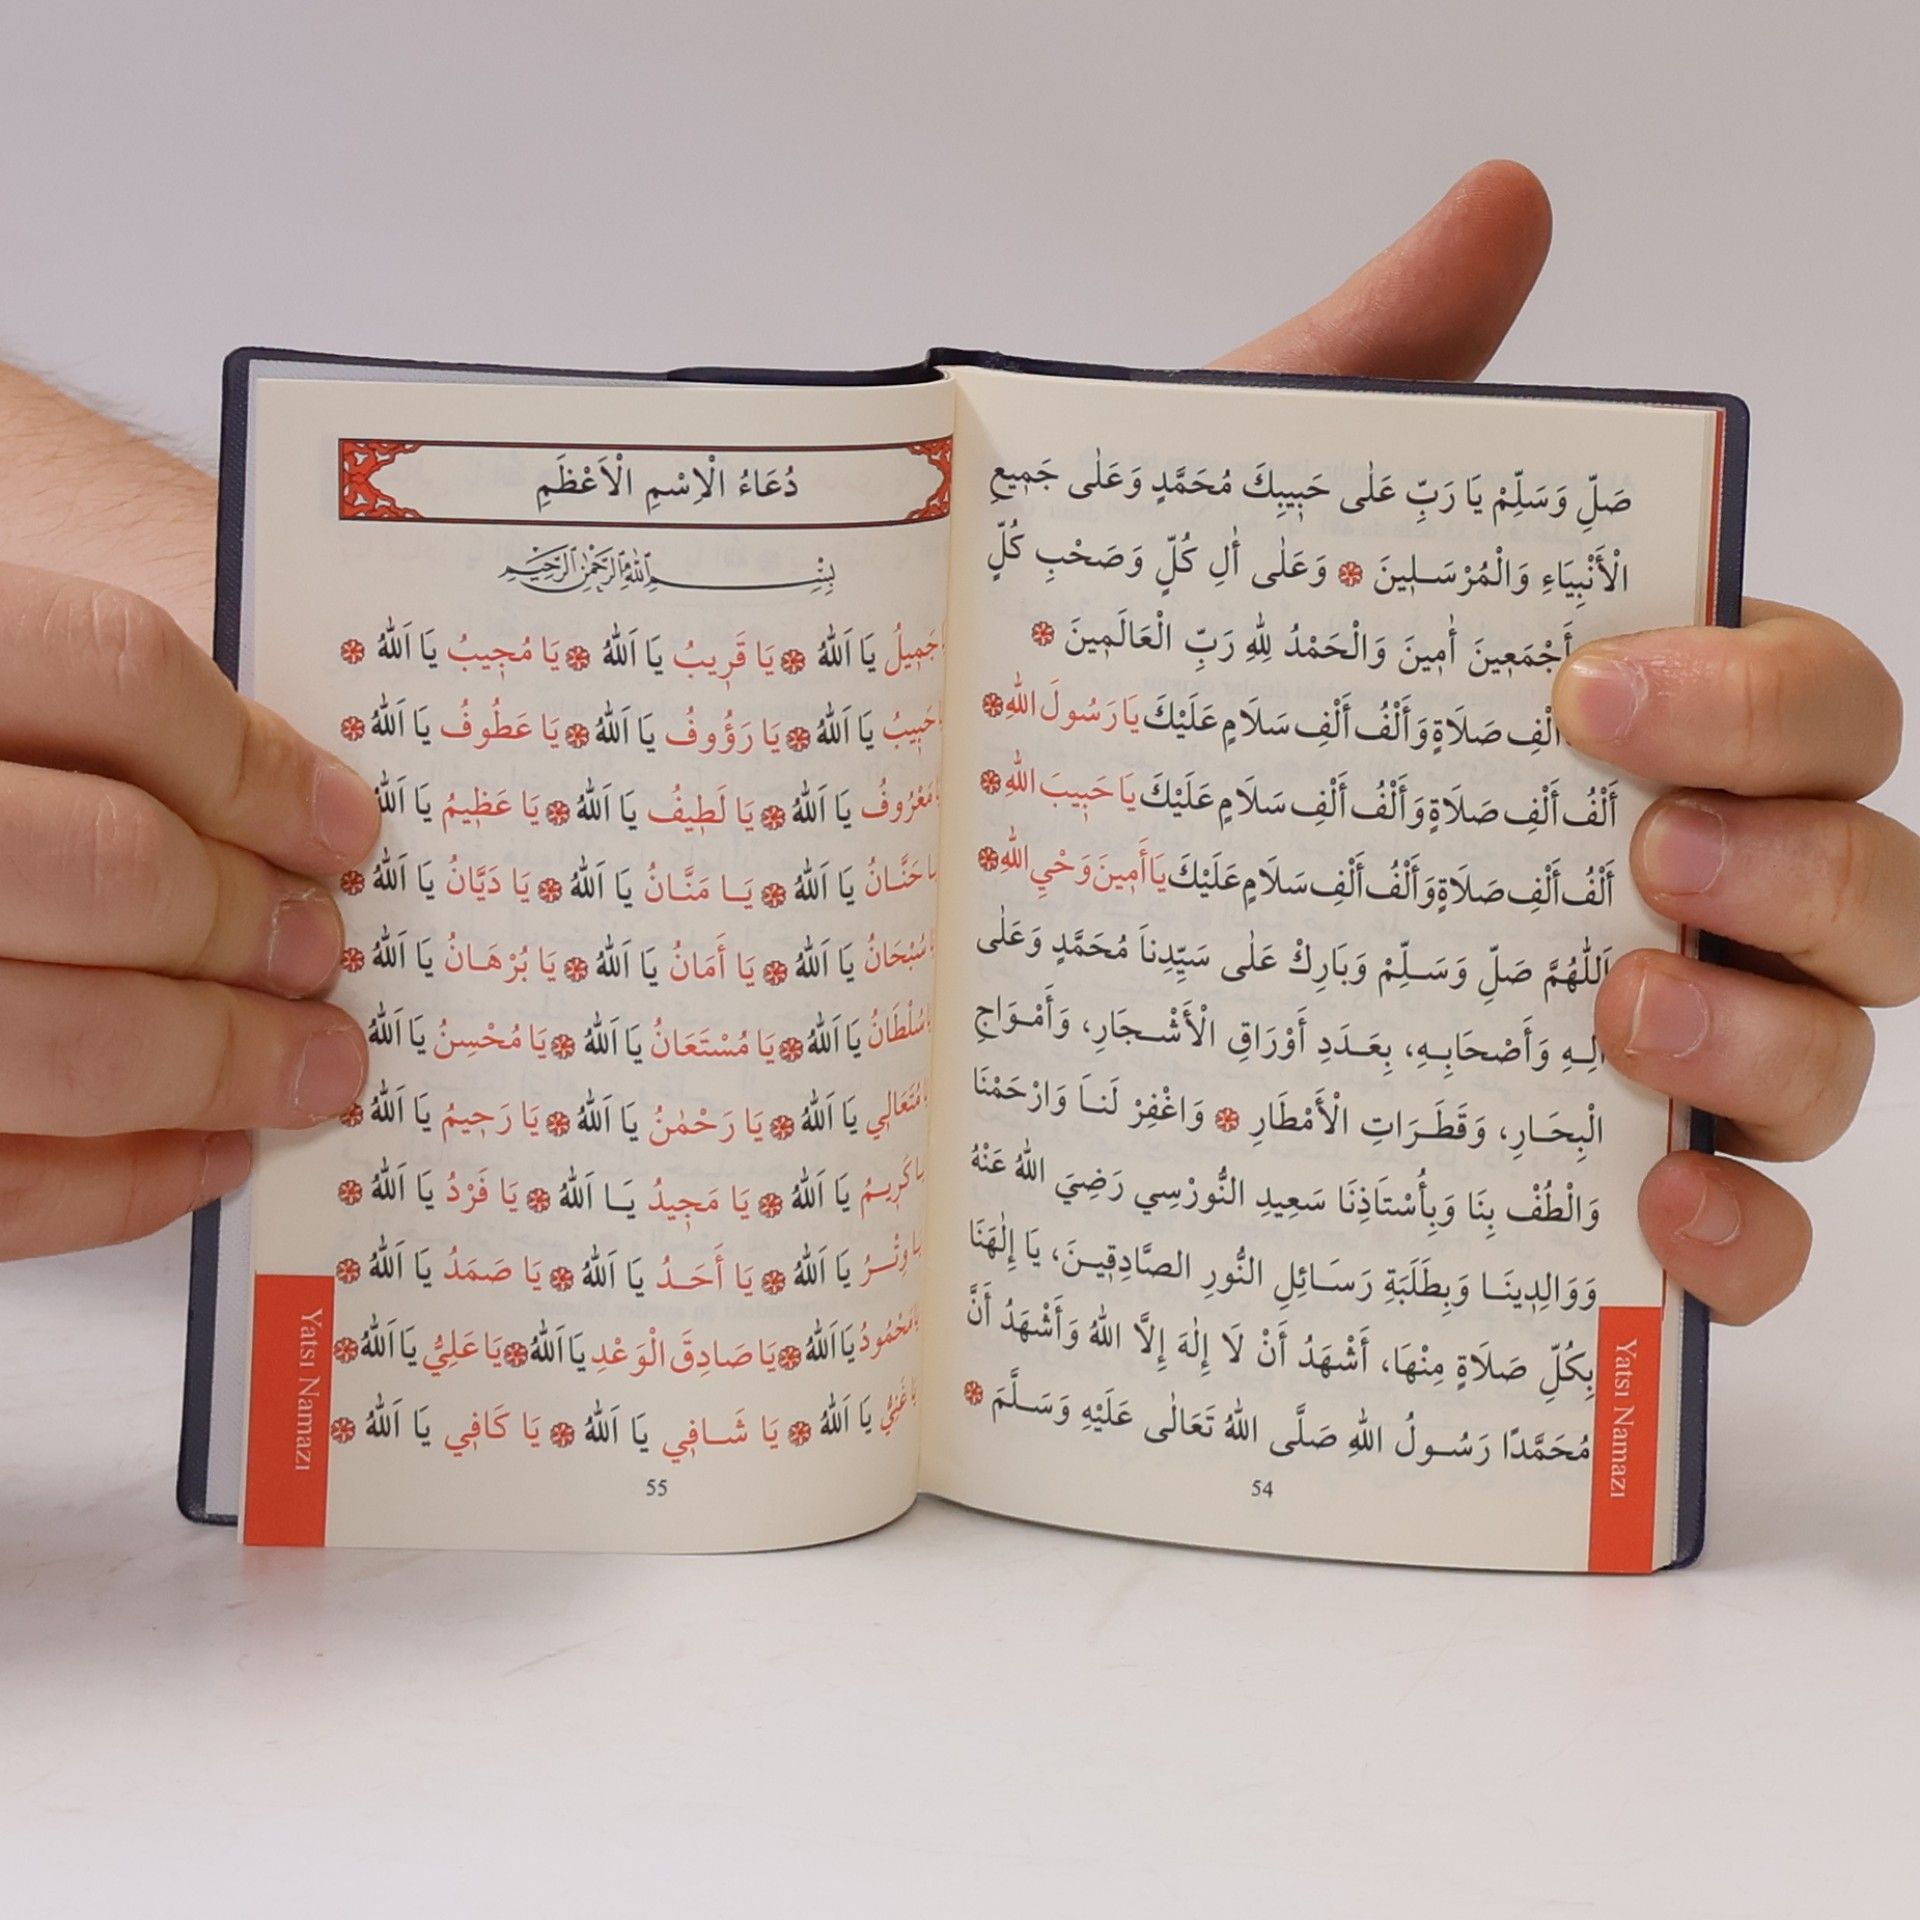 صَلِّ وَسَلِّمْ يَا رَبِّ عَلٰى حَبِيبِكَ مُحَمَّدٍ وَعَلٰى جَمِيعِ
الْأَنْبِيَاءِ وَالْمُرْسَلِينَ ❁ وَعَلٰى أٰلِ كُلٍّ وَصَحْبِ كُلٍّ
أَجْمَعِينَ أٰمِينَ وَالْحَمْدُ لِلّٰهِ رَبِّ الْعَالَمِينَ ❁
أَلْفِ صَلَاةٍ وَأَلْفُ أَلْفِ سَلَامٍ عَلَيْكَ يَا رَسُولَ اللّٰهِ ❁
أَلْفُ أَلْفِ صَلَاةٍ وَأَلْفُ أَلْفِ سَلَامٍ عَلَيْكَ يَا حَبِيبَ اللّٰهِ ❁
أَلْفُ أَلْفِ صَلَاةٍ وَأَلْفُ أَلْفِ سَلَامٍ عَلَيْكَ يَا أَمِينَ وَحْيِ اللّٰهِ ❁
اَللّٰهُمَّ صَلِّ وَسَلِّمْ وَبَارِكْ عَلٰى سَيِّدِنَا مُحَمَّدٍ وَعَلٰى
اٰلِهِ وَأَصْحَابِهِ، بِعَدَدِ أَوْرَاقِ الْأَشْجَارِ، وَأَمْوَاجِ
الْبِحَارِ، وَقَطَرَاتِ الْأَمْطَارِ ❁ وَاغْفِرْ لَنَا وَارْحَمْنَا
وَالْطُفْ بِنَا وَبِأُسْتَاذِنَا سَعِيدِ النُّورْسِي رَضِيَ اللّٰهُ عَنْهُ
وَوَالِدِينَا وَبِطَلَبَةِ رَسَائِلِ النُّورِ الصَّادِقِينَ، يَا إِلٰهَنَا
بِكُلِّ صَلَاةٍ مِنْهَا، أَشْهَدُ أَنْ لَا إِلٰهَ إِلَّا اللّٰهُ وَأَشْهَدُ أَنَّ
مُحَمَّدًا رَسُولُ اللّٰهِ صَلَّى اللّٰهُ تَعَالٰى عَلَيْهِ وَسَلَّمَ ❁
54
Yatsı Namazı
دُعَاءُ الْاِسْمِ الْاَعْظَمِ
بِسْمِ اللّٰهِ الرَّحْمٰنِ الرَّحِيمِ
جَمِيلُ يَا اَللّٰهُ ❁ يَا قَرِيبُ يَا اَللّٰهُ ❁ يَا مُجِيبُ يَا اَللّٰهُ ❁
حَبِيبُ يَا اَللّٰهُ ❁ يَا رَؤُوفُ يَا اَللّٰهُ ❁ يَا عَطُوفُ يَا اَللّٰهُ ❁
مَعْرُوفُ يَا اَللّٰهُ ❁ يَا لَطِيفُ يَا اَللّٰهُ ❁ يَا عَظِيمُ يَا اَللّٰهُ
يَا حَنَّانُ يَا اَللّٰهُ ❁ يَا مَنَّانُ يَا اَللّٰهُ ❁ يَا دَيَّانُ يَا اَللّٰهُ ❁
سُبْحَانُ يَا اَللّٰهُ ❁ يَا أَمَانُ يَا اَللّٰهُ ❁ يَا بُرْهَانُ يَا اَللّٰهُ ❁
سُلْطَانُ يَا اَللّٰهُ ❁ يَا مُسْتَعَانُ يَا اَللّٰهُ ❁ يَا مُحْسِنُ يَا اَللّٰهُ
مُتَعَالِي يَا اَللّٰهُ ❁ يَا رَحْمٰنُ يَا اَللّٰهُ ❁ يَا رَحِيمُ يَا اَللّٰهُ ❁
يَا كَرِيمُ يَا اَللّٰهُ ❁ يَا مَجِيدُ يَا اَللّٰهُ ❁ يَا فَرْدُ يَا اَللّٰهُ ❁
يَا وِتْرُ يَا اَللّٰهُ ❁ يَا أَحَدُ يَا اَللّٰهُ ❁ يَا صَمَدُ يَا اَللّٰهُ ❁
يَا مَحْمُودُ يَا اَللّٰهُ ❁ يَا صَادِقَ الْوَعْدِ يَا اَللّٰهُ ❁ يَا عَلِيُّ يَا اَللّٰهُ ❁
يَا غَنِيُّ يَا اَللّٰهُ ❁ يَا شَافِي يَا اَللّٰهُ ❁ يَا كَافِي يَا اَللّٰهُ ❁
55
Yatsı Namazı